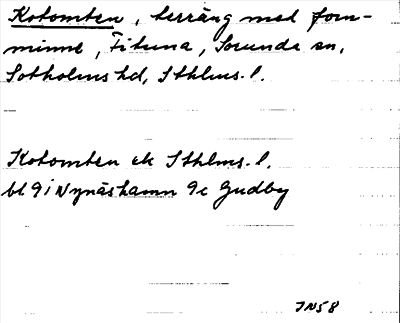 Kotomten, terräng med forn-
minne, Fituna, Sorunda sn,
Sotholms hd, Sthlms. l.
Kotomten ek Sthlms. l.
bl 9i Nynäshamn 9c Gudby
JN58